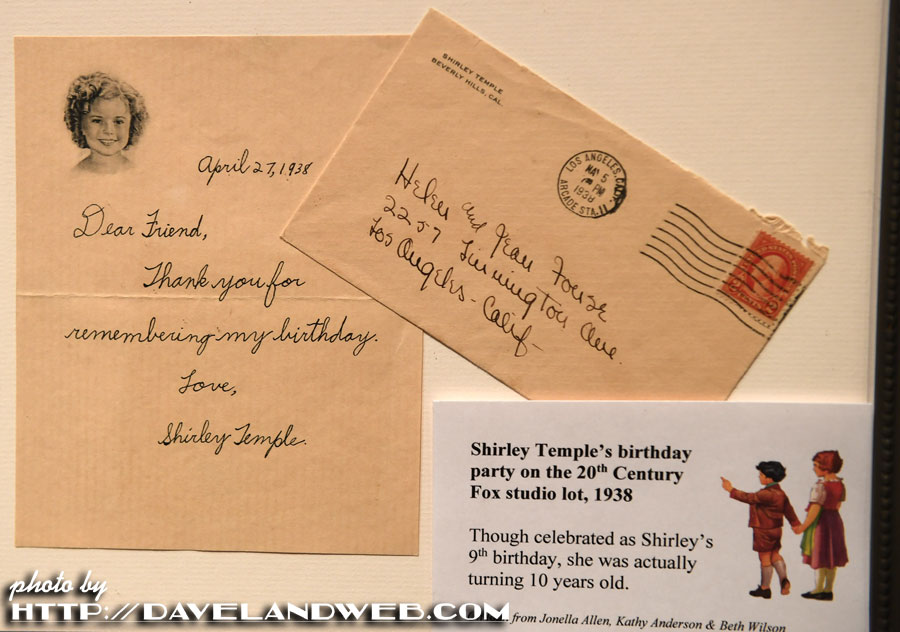 April 27, 1938
Dear Friend,
Thank you for
remembering my birthday.
Love,
Shirley Temple.
SHIRLEY TEMPLE
BEVERLY HILLS, CAL.
LOS ANGELES, CALIF.
MAY 5
PM
1938
ARCADE STA. 11
Helen and Jean Fouse
2257 Linnington Ave.
Los Angeles - Calif-
2 2
Shirley Temple's birthday
party on the 20th Century
Fox studio lot, 1938
Though celebrated as Shirley's
9th birthday, she was actually
turning 10 years old.
from Jonella Allen, Kathy Anderson & Beth Wilson
photo by
HTTP://DAVELANDWEB.COM